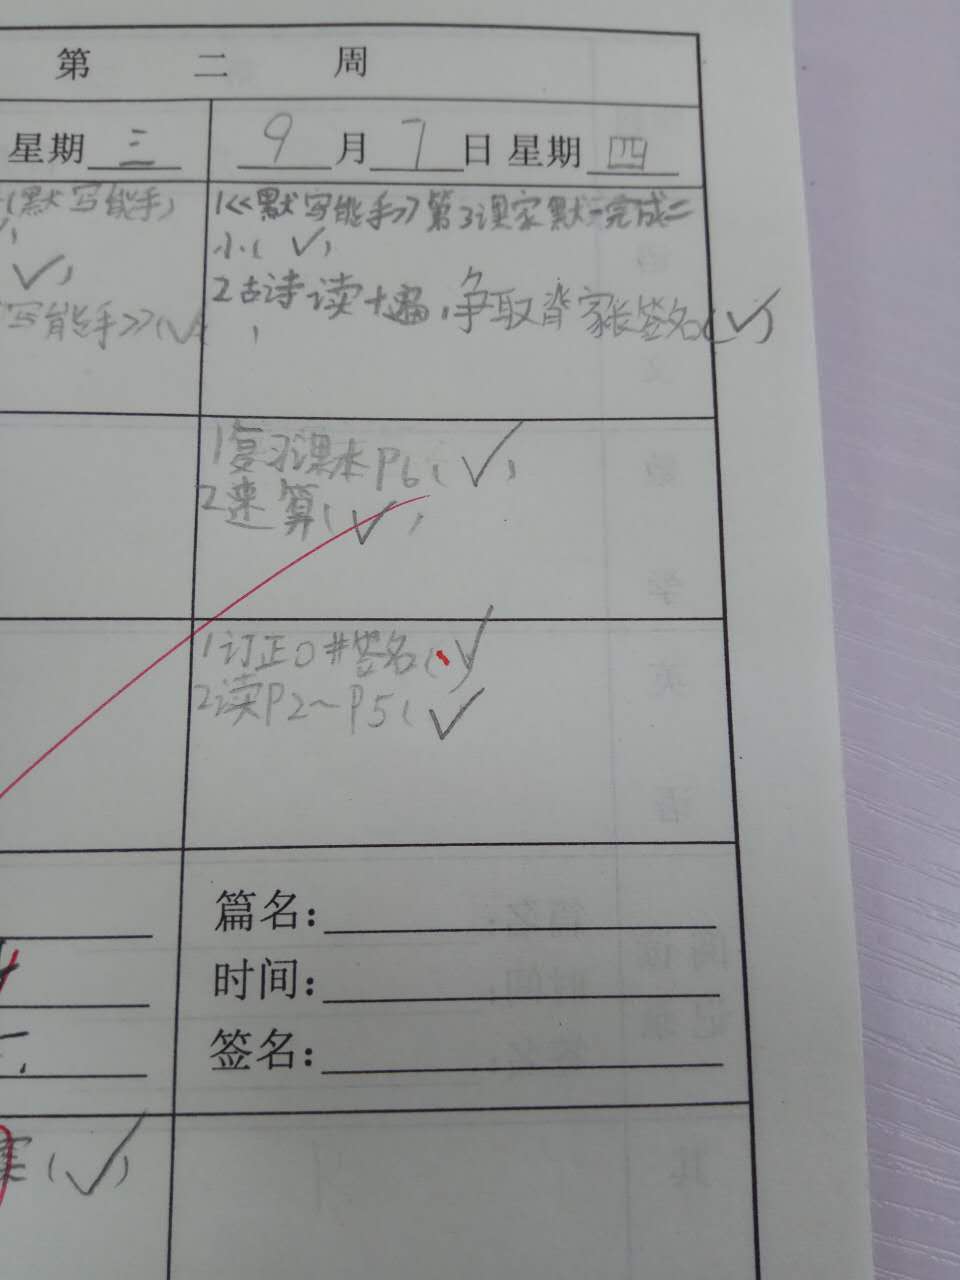 第 二 周
星期 三
9 月 7 日 星期 四
(默写能手)
写能手》(√
1《默写能手》第3课家默一完成二
小(√)
2古诗读十遍,争取背家长签名(√)
1复习课本P6(√)
2速算(√)
1订正0#签名(√)
2读P2~P5(√
篇名:
时间:
签名:
(√)